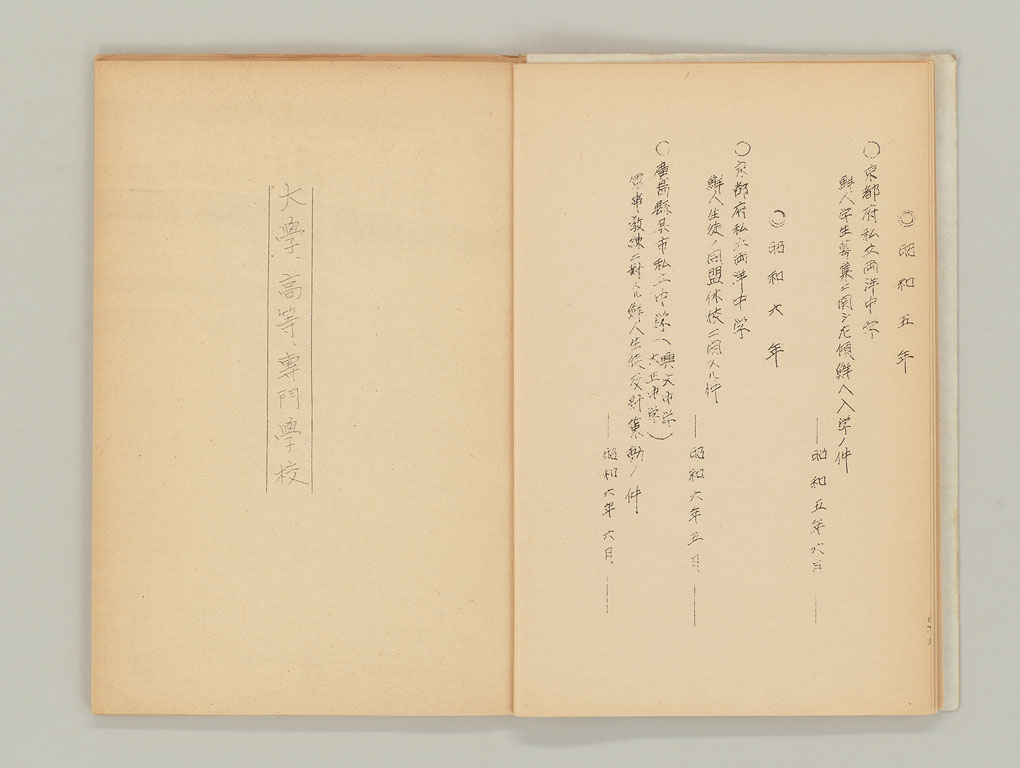 ◎昭和五年
○京都府私立両洋中学
鮮人学生募集ニ関シ左傾鮮人入学ノ件
──昭和五年六月──
◎昭和六年
○京都府私立両洋中学
鮮人生徒ノ同盟休校ニ関スル件
──昭和六年五月──
○廣島縣呉市私立中学(興文中学
大正中学)
軍事教練ニ対スル鮮人生徒反対策動ノ件
──昭和六年六月──
大學、高等、専門學校